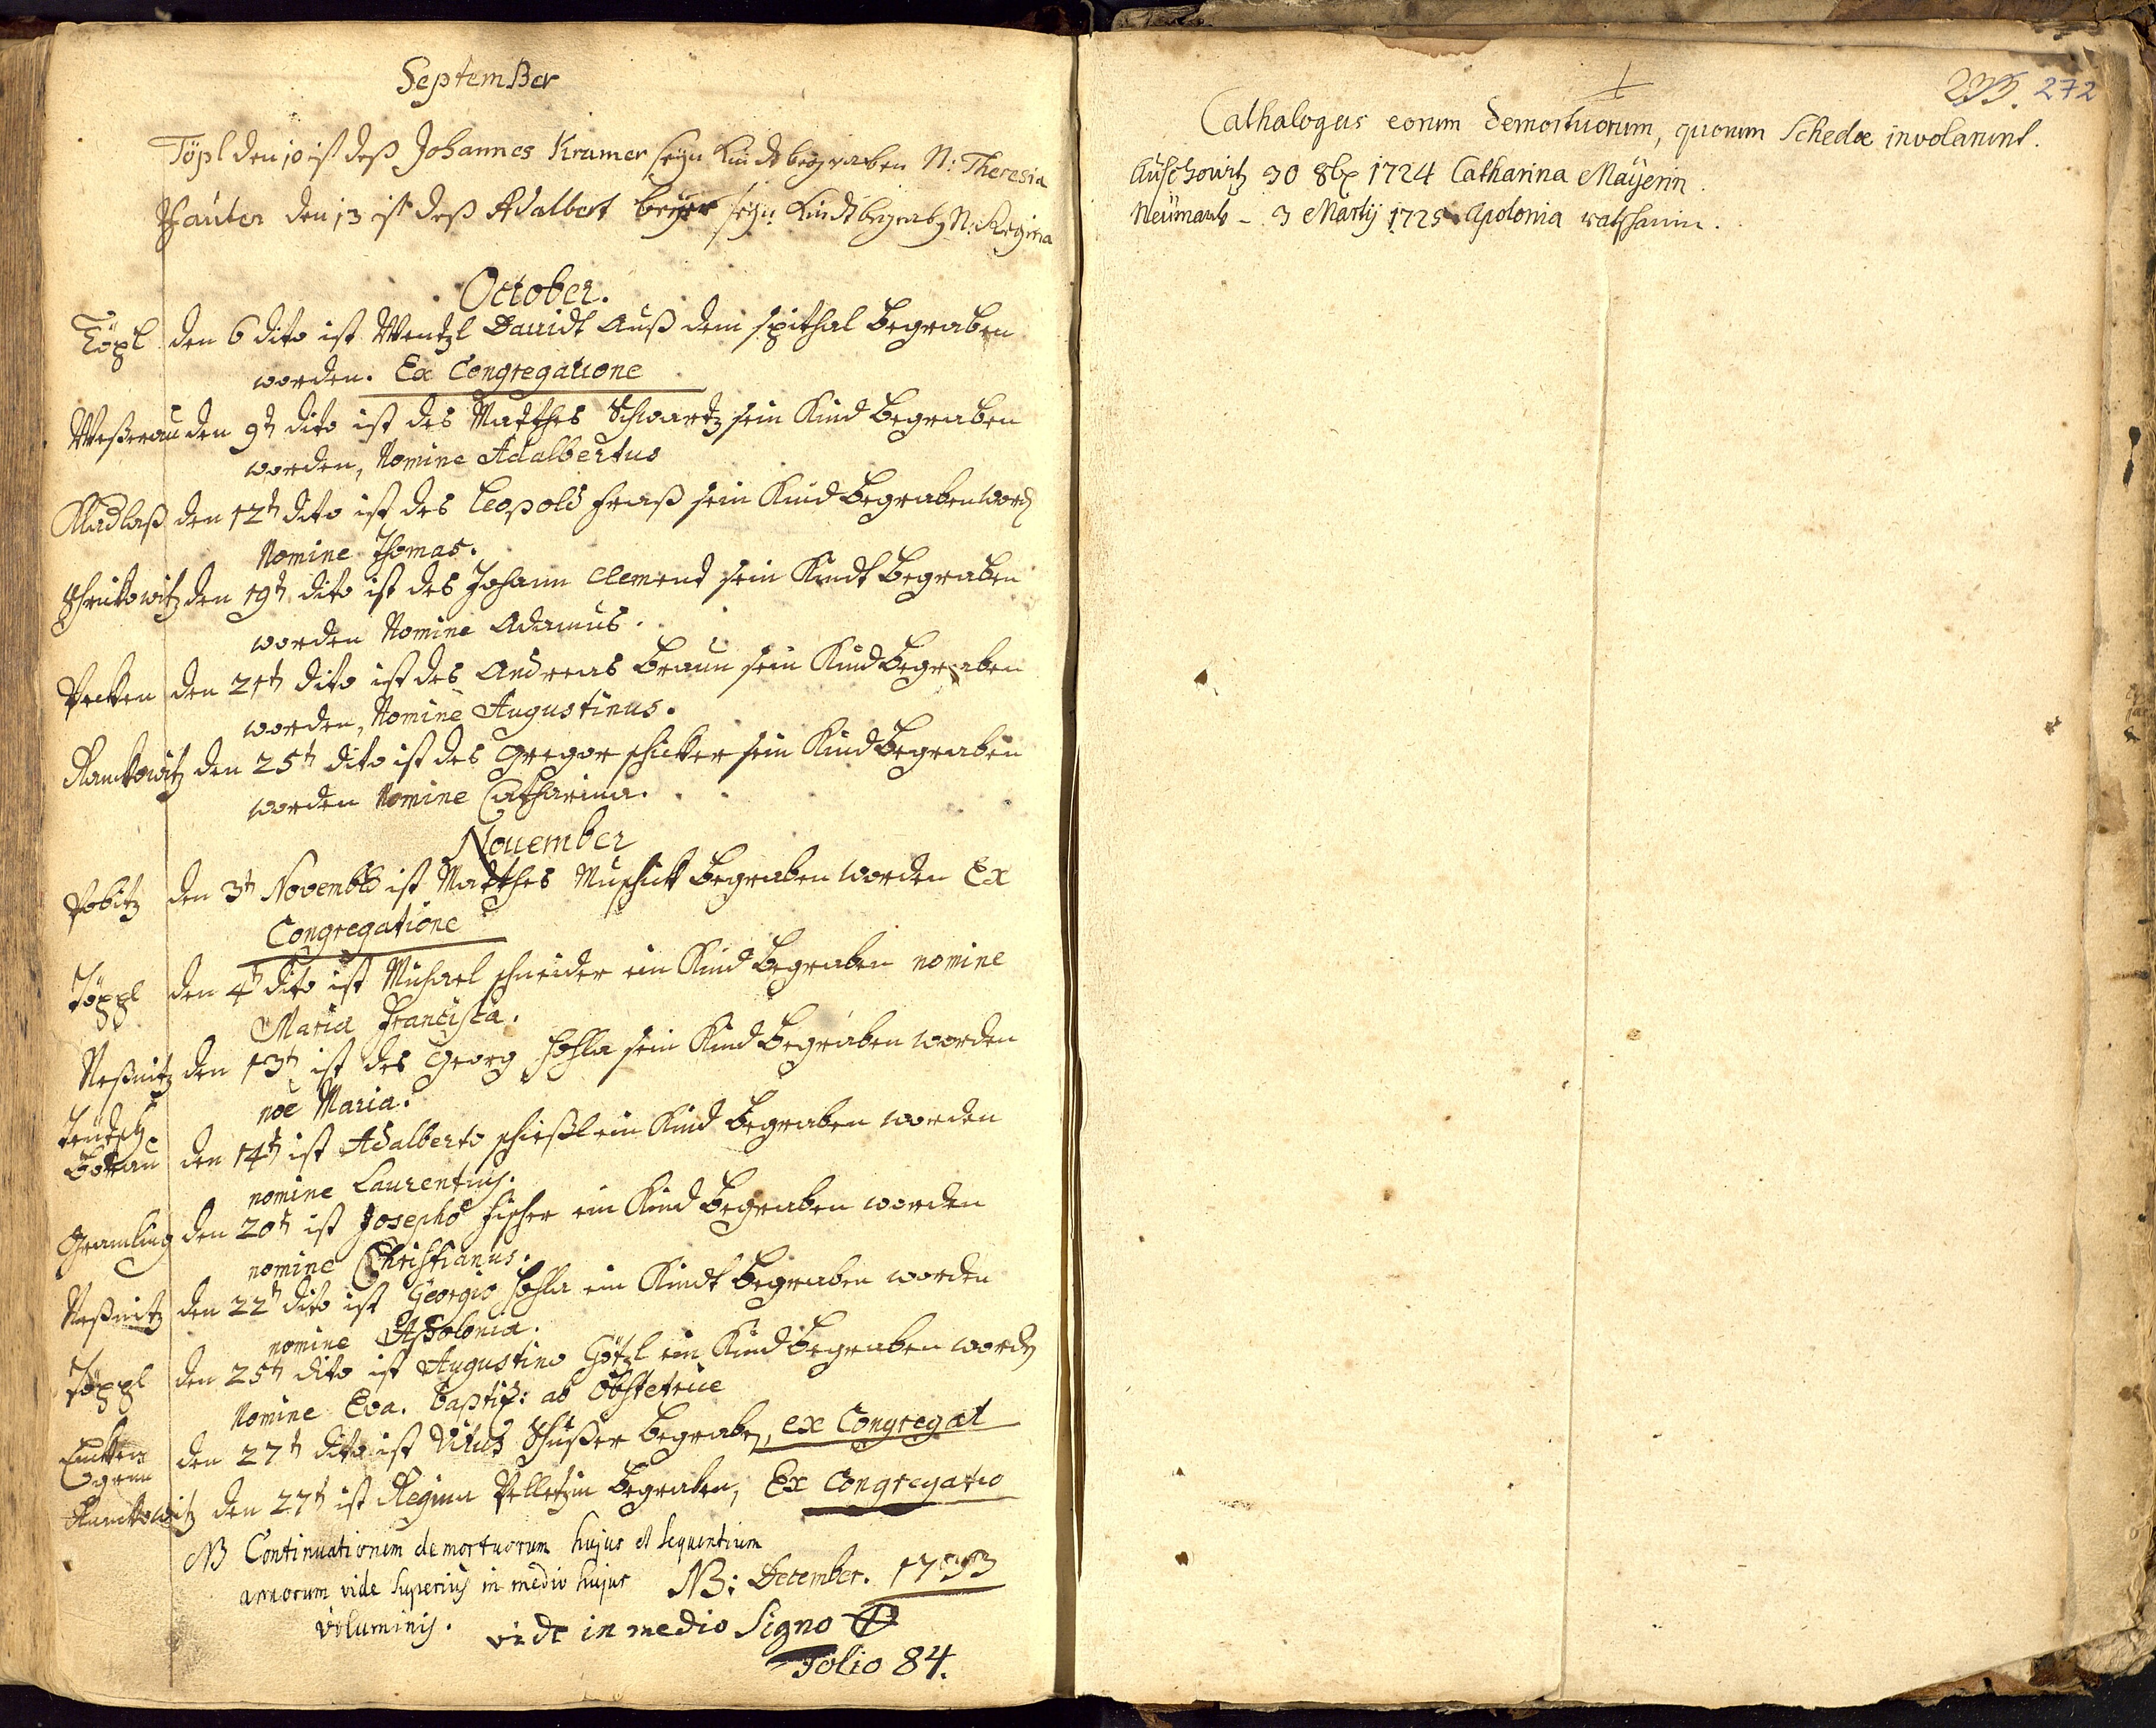 September
Töpl den 10 ist deß Johannes Kramer seyn Kindt begraben N: Theresia
Pfauten den 13 ist deß Adalbert beyer seyn Kindt begrab N: Regina
October.
Töpl den 6 dito ist Wentzl Dauidt Auß dem spithal begraben
worden. Ex Congregatione
Weßerau den 9t dito ist des Matthes Schwartz sein Kind begraben
worden, Nomine Adalbertus
Kladlaß den 12t dito ist des Leopold sein Kind begraben word
Nomine Thomas.
den 19t dito ist des Johann Clement sein Kindt begraben
worden Nomine Adamus.
Pecken den 21t dito ist des Andreas Braun sein Kind begraben
worden, Nomine Augustinus.
Rankowitz den 25t dito ist des Gregor schicker sein Kind begraben
worden Nomine Catharina.
Nouember
Pobitz den 3t Novemb ist Matthes Muschick begraben worden Ex
Congregatione
Töppl den 4t dito ist Michael schneider ein Kind begraben nomine
Maria Francisca.
Neßnitz den 13t ist des Georg Hohla sein Kind begraben worden
noe Maria.
Teutsch
Borau den 14t ist Adalberto schießl ein Kind begraben worden
nomine Laurentius.
Gramling den 20t ist Josepho fischer ein Kind begraben worden
nomine Christianus.
Neßnitz den 22t dito ist Georgio Hohla ein Kindt begraben worden
nomine Apolonia.
Töppl den 25t dito ist Augustino Götzl ein Kind begraben word
Nomine Eva. baptiz: ab Obstetrice
den 27t dito ist Vitus Schußer begraben, ex Congregat
Rankowitz den 27t ist Regina Pelletzin begraben, Ex Congregatio
NB Continuationem demortuorum hujus et sequentium
annorum vide superius in medio hujus NB: December. 1733
voluminis. vide in medio Signo
Folio 84.
272
Cathalogus eorum demortuorum, quorum Schedæ involarunt.
Auschowitz 30 8br 1724 Catharina Mayerin.
Neumark - 3 Martij 1725 Apolonia